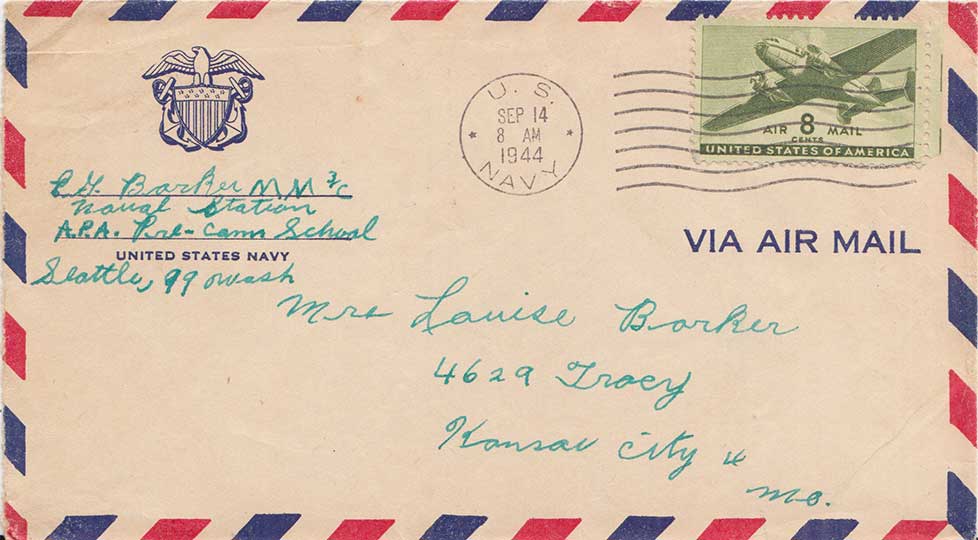 U. S. NAVY
SEP 14
8 AM
1944
AIR 8 MAIL
CENTS
UNITED STATES OF AMERICA
VIA AIR MAIL
Barker M M 3/c
Naval Station
A.P.A. Pre-Com School
UNITED STATES NAVY
Seattle, 99 Wash
Mrs Louise Barker
4629 Tracy
Kansas City 4
Mo.